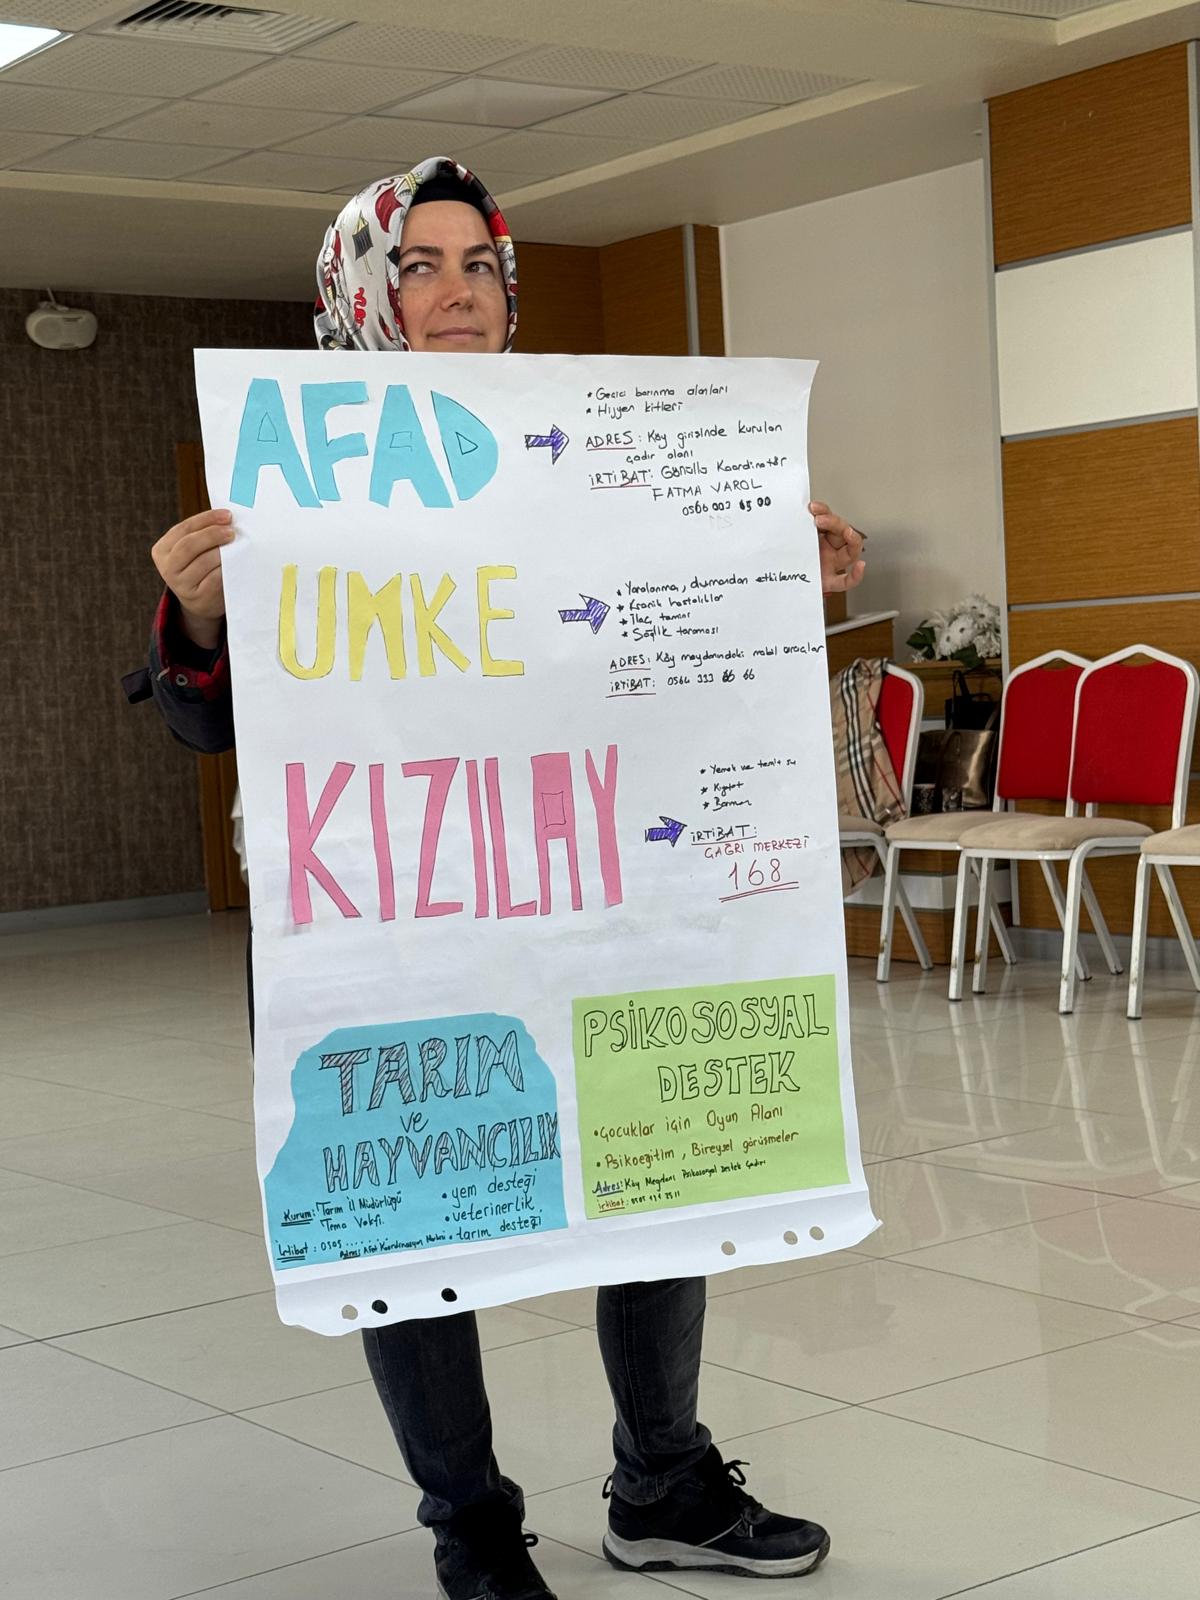 AFAD
* Geçici barınma alanları
* Hijyen kitleri
ADRES: Köy girişinde kurulan
çadır alanı
İRTİBAT: Gönüllü Koordinatör
FATMA VAROL
UMKE
* Yaralanma, dumandan etkilenme
* Kronik hastalıklar
* İlaç temini
* Sağlık taraması
ADRES: Köy meydanındaki mobil araçlar
İRTİBAT: 0564 333 66 66
KIZILAY
* Yemek ve temiz su
* Kıyafet
* Barınma
İRTİBAT:
ÇAĞRI MERKEZİ
168
TARIM
ve
HAYVANCILIK
Kurum: Tarım İl Müdürlüğü
Tema Vakfı.
• yem desteği
• veterinerlik
• tarım desteği
İrtibat: 0505........
Adres: Afad Koordinasyon Merkezi
PSİKOSOSYAL
DESTEK
• Çocuklar için Oyun Alanı
• Psikoeğitim, Bireysel görüşmeler
Adres: Köy Meydanı Psikososyal Destek Çadırı
irtibat: